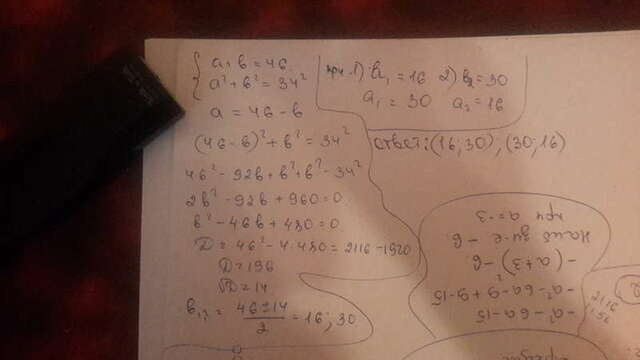 a+b=46
a²+b²=34²
a=46-b
(46-b)²+b²=34²
46²-92b+b²+b²-34²
2b²-92b+960=0
b²-46b+480=0
D=46²-4·480=2116-1920
D=196
√D=14
b₁,₂=(46±14)/2=16;30
при 1) b₁=16 2) b₂=30
a₁=30 a₂=16
ответ:(16;30);(30;16)
-a²-6a-15
-a²-6a-9+9-15
-(a+3)²-6
Наиб
при a=-3
2116